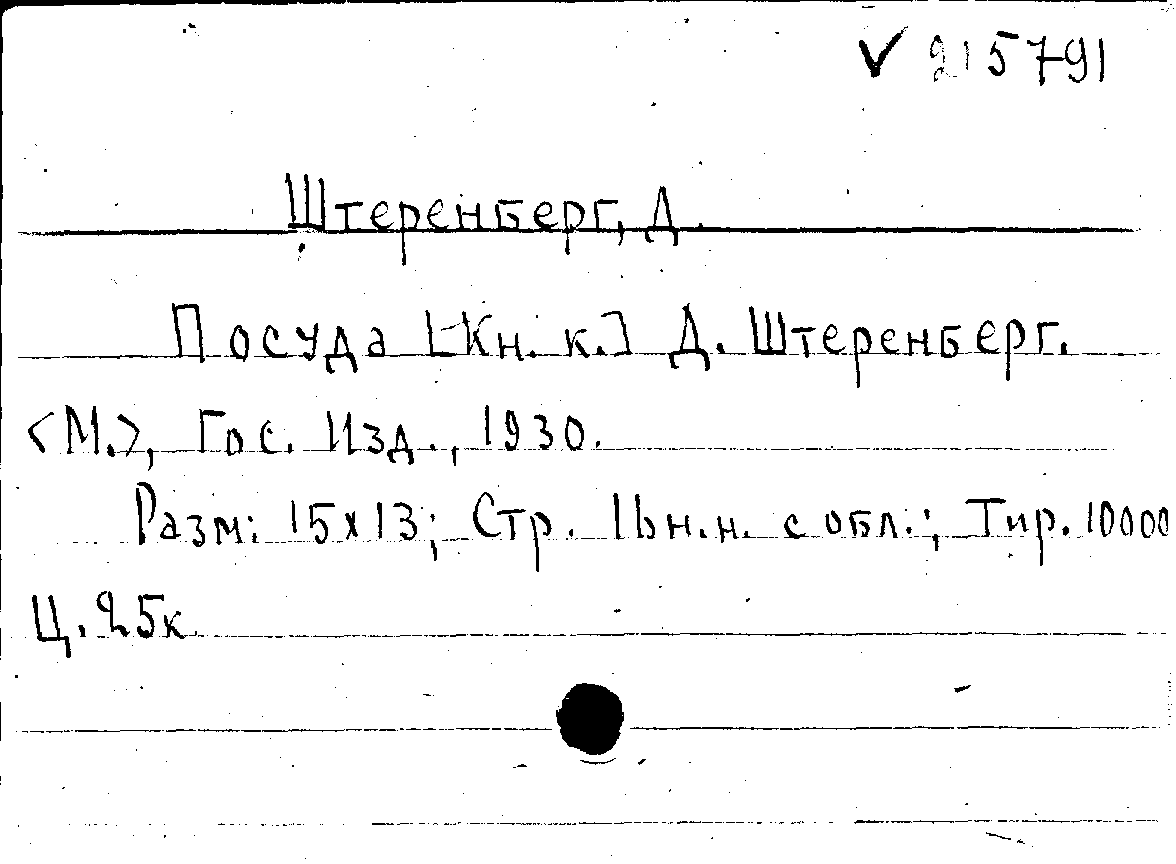 ✓ 215791
Штеренберг, Д.
Посуда [Кн. к.] Д. Штеренберг.
<М.>, Гос. Изд., 1930.
Разм: 15х13; Стр. 16 н.н. с обл.; Тир. 10000
Ц. 25к.